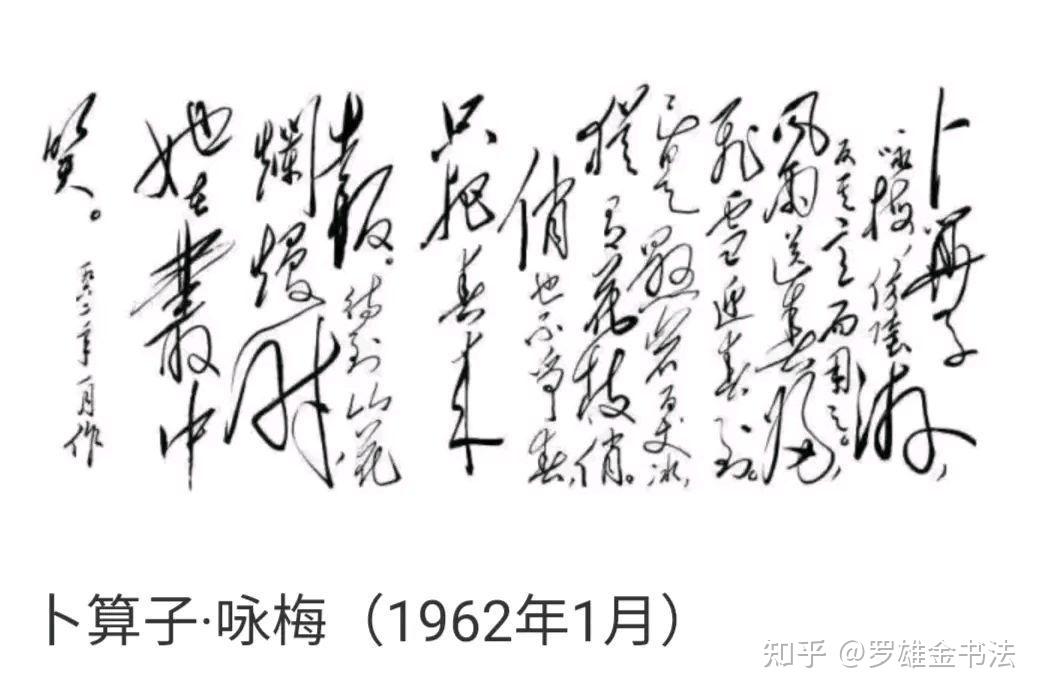 卜算子
咏梅,仿陸游,
反其意而用之。
風雨送春歸,
飛雪迎春到。
已是懸岩百丈冰,
猶有花枝俏。
俏也不爭春,
只把春來
報。待到山花
爛熳時,
她在叢中
笑。
一九六二年一月作
卜算子·咏梅（1962年1月）
知乎 @罗雄金书法